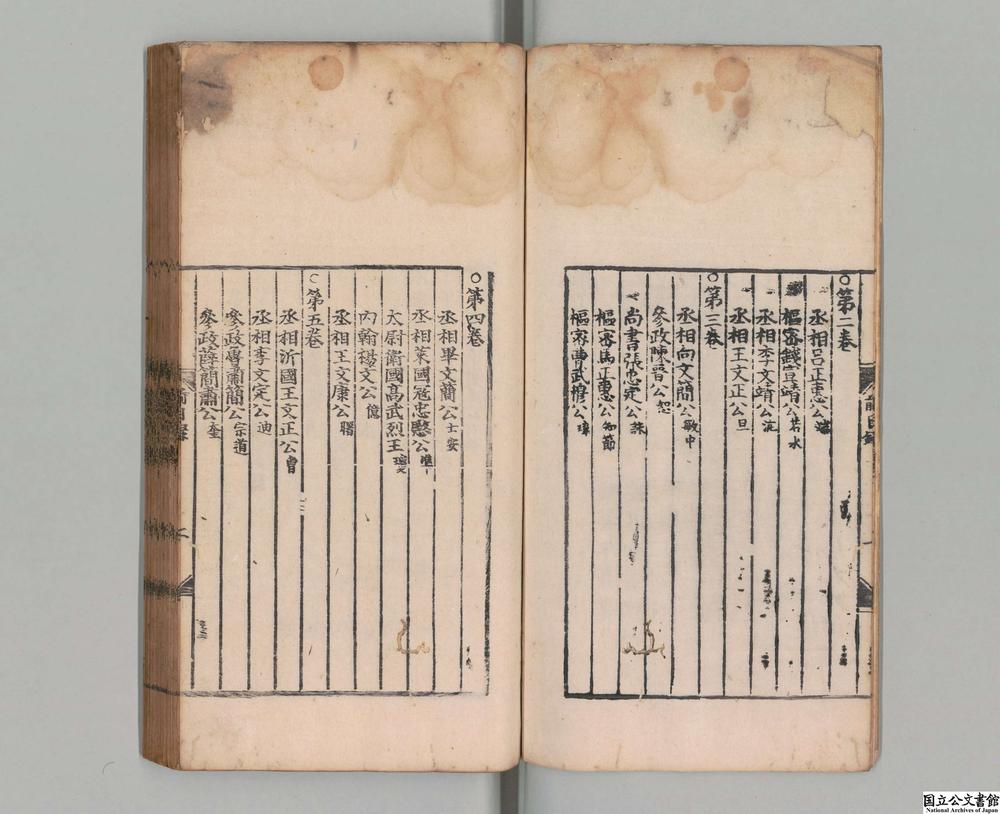 ○第二卷
丞相呂正惠公端
樞密錢宣靖公若水
丞相李文靖公沆
丞相王文正公旦
○第三卷
丞相向文簡公敏中
參政陳晉公恕
尚書張忠定公詠
樞密馬正惠公知節
樞密曹武穆公瑋
○第四卷
丞相畢文簡公士安
丞相萊國寇忠愍公準
太尉衛國高武烈王瓊
內翰楊文公億
丞相王文康公曙
○第五卷
丞相沂國王文正公曾
丞相李文定公迪
參政魯肅簡公宗道
參政薛簡肅公奎
国立公文書館
National Archives of Japan